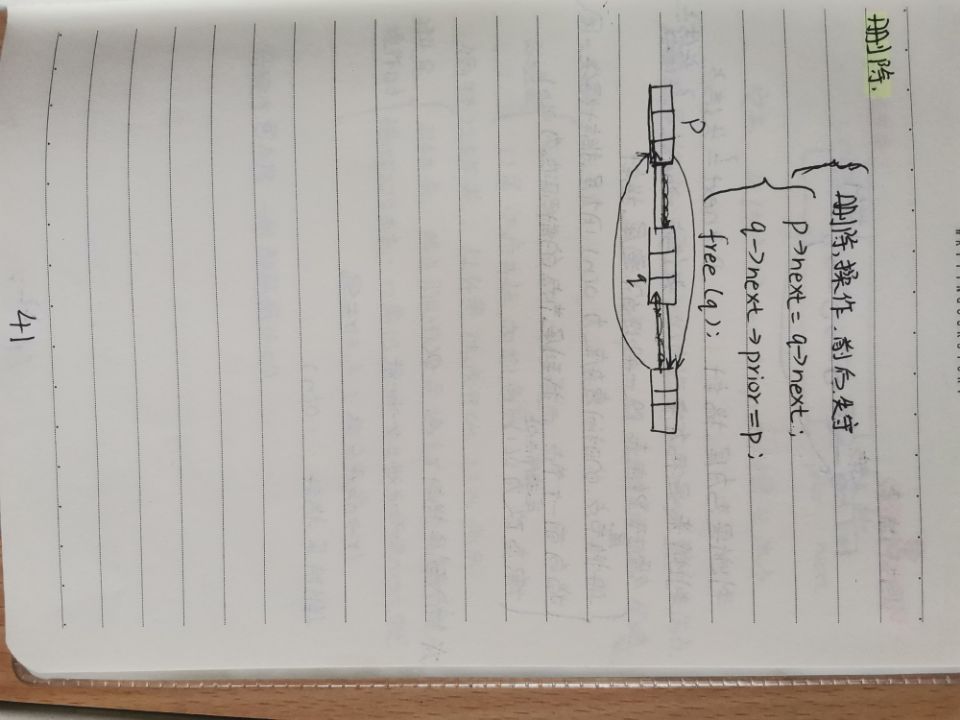 删除.
删除操作.
p→next = q→next;
q→next→prior = p;
free(q);
p
q
41